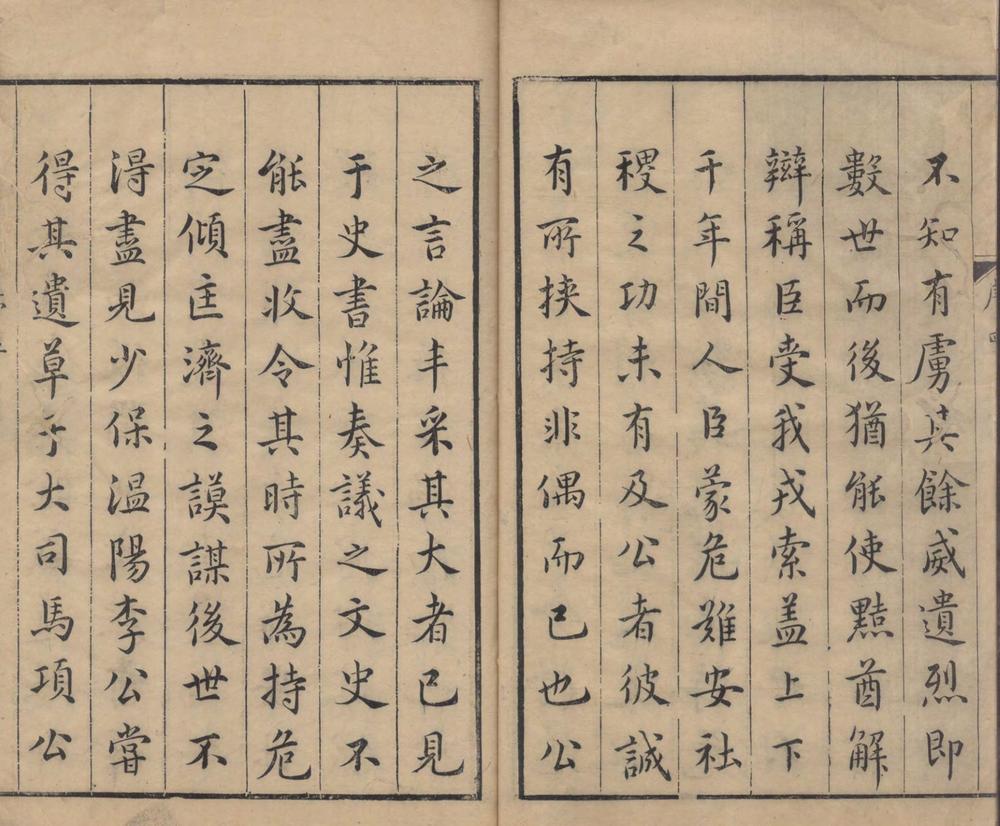 不知有虜其餘威遺烈即
數世而後猶能使黠酋解
辯稱臣受我戎索盖上下
千年間人臣蒙危難安社
稷之功未有及公者彼誠
有所挟持非偶而已也公
之言論丰采其大者已見
于史書惟奏議之文史不
能盡收令其時所為持危
定傾匡濟之謨謀後世不
得盡見少保温陽李公嘗
得其遺草于大司馬項公